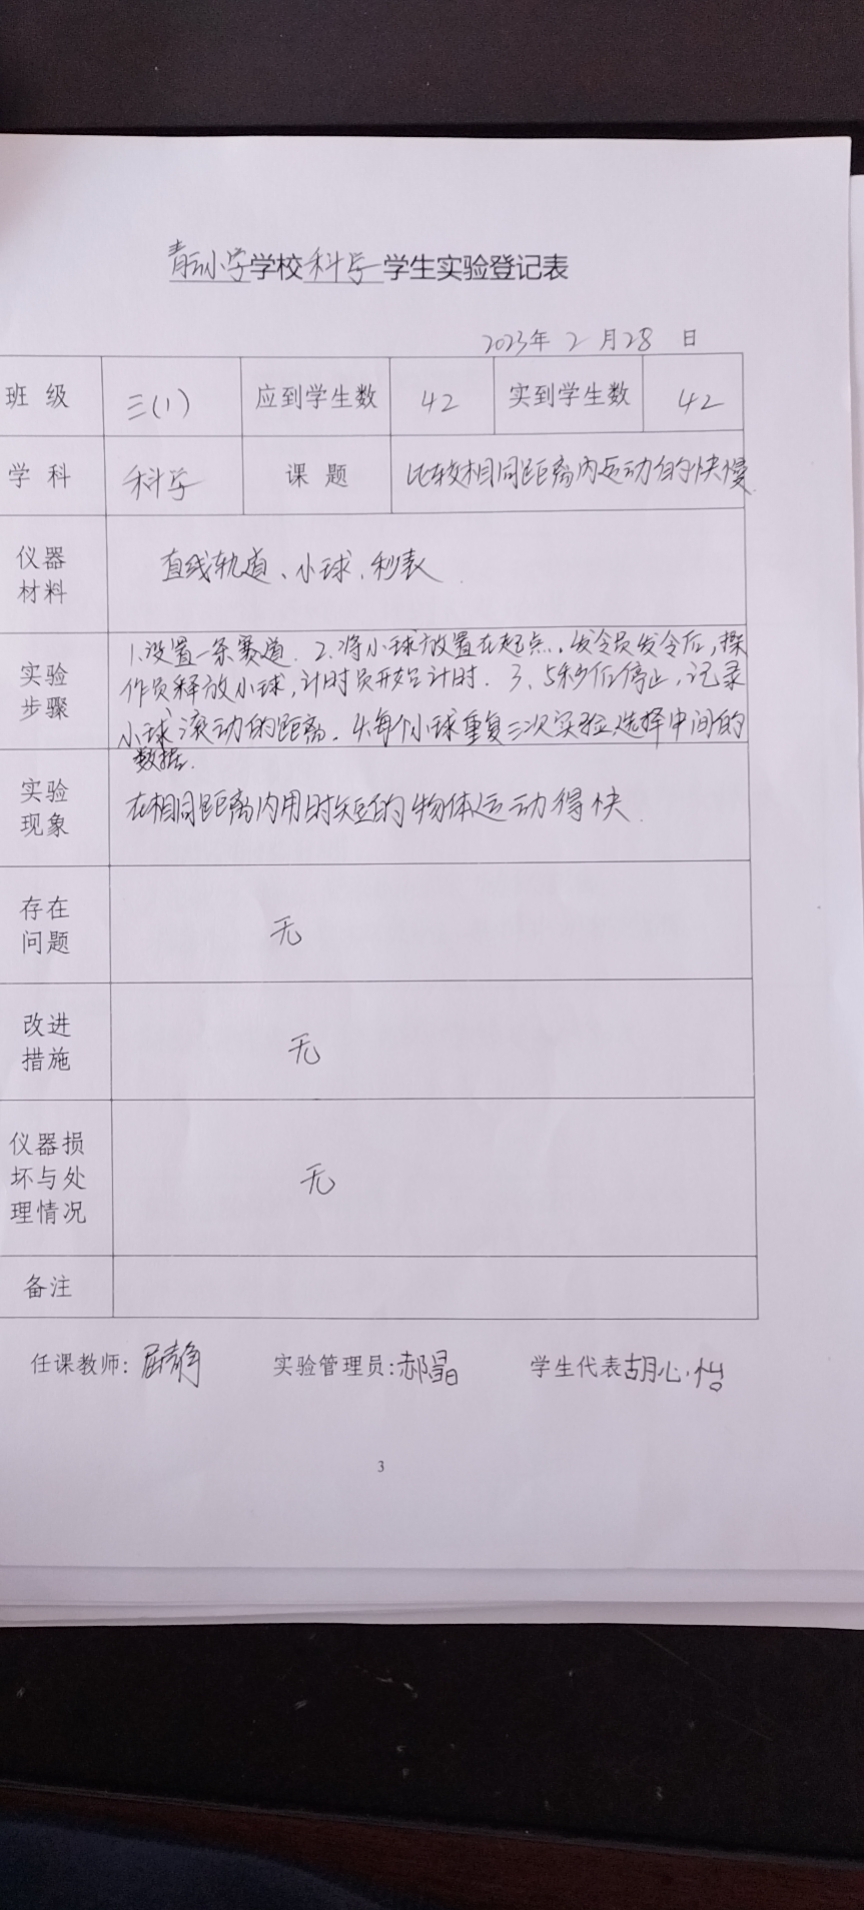 青云小学学校科学学生实验登记表
2023年 2 月 28 日
班 级 三(1) 应到学生数 42 实到学生数 42
学 科 科学 课 题 比较相同距离内运动的快慢
仪器
材料
直线轨道、小球、秒表
实验
步骤
1.设置一条赛道. 2.将小球放置在起点, 发令员发令后,操
作员释放小球,计时员开始计时. 3、5秒后停止,记录
小球滚动的距离. 4.每个小球重复三次实验,选择中间的
数据.
实验
现象
在相同距离内用时短的物体运动得快.
存在
问题
无
改进
措施
无
仪器损
坏与处
理情况
无
备注
任课教师:屈静 实验管理员:郝晶 学生代表胡心怡
3